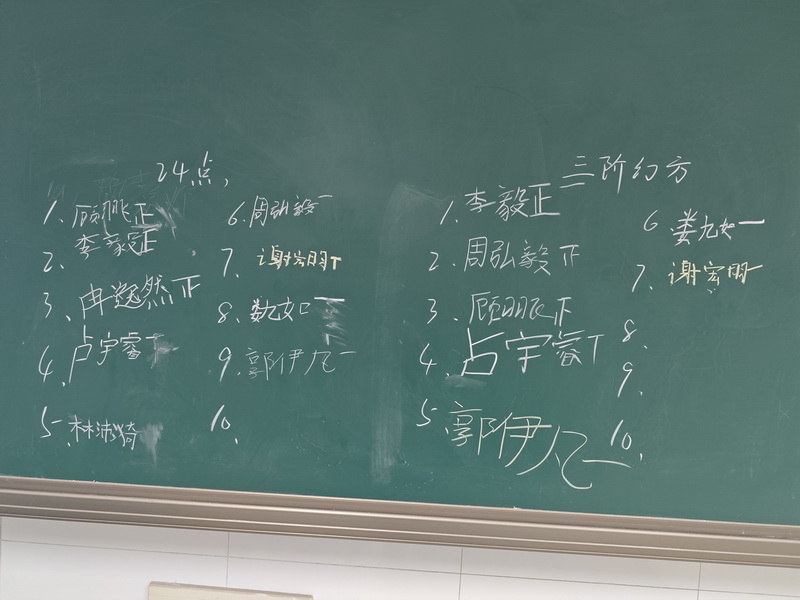 24点,
1、顾鹏正
2、李毅正
3、冉逸然正
4、卢宇睿T
5、林沛犄
6、周弘毅一
7、谢宏明T
8、娄九如一
9、郭伊凡一
10、
三阶幻方
1、李毅正
2、周弘毅正
3、顾鹏下
4、占宇睿T
5、郭伊凡一
6、娄九如一
7、谢宏明一
8、
9、
10、